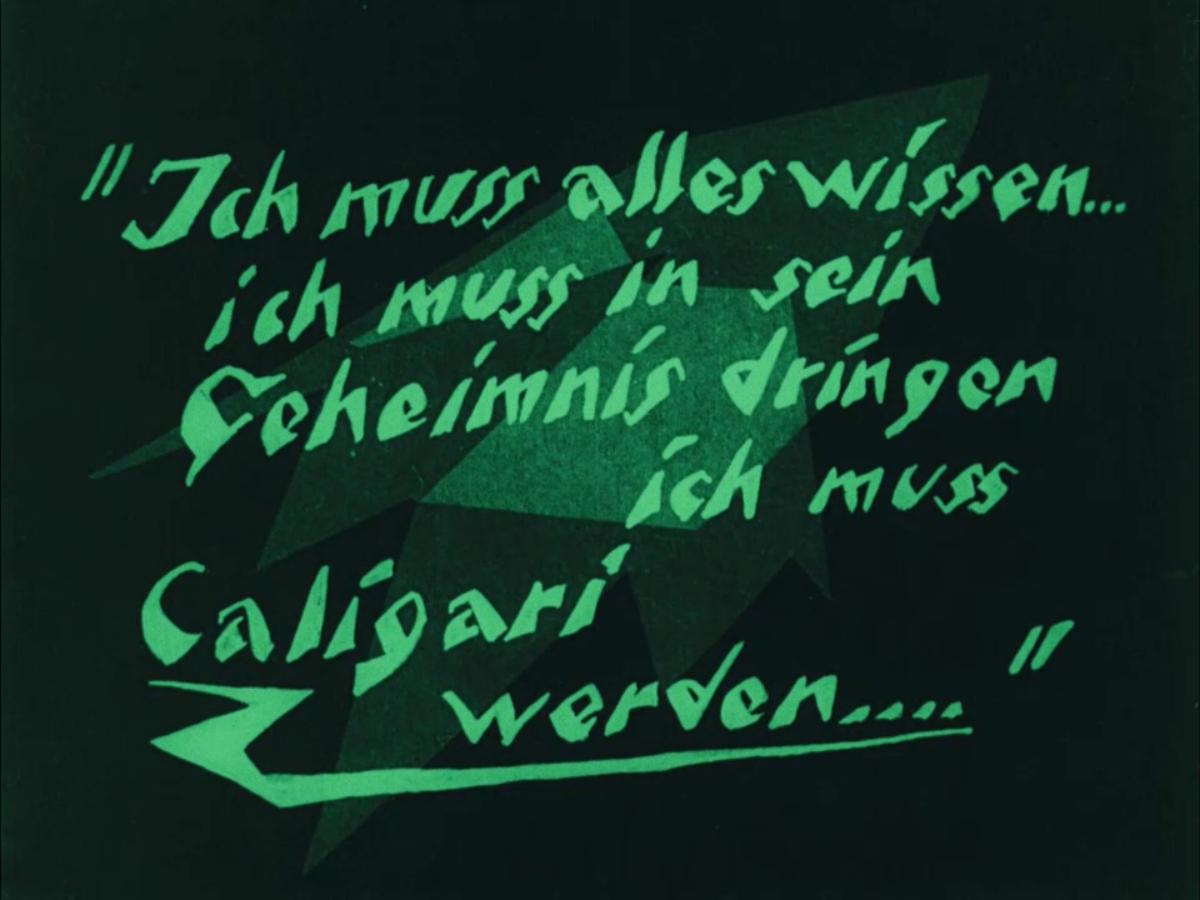 "Ich muss alles wissen...
ich muss in sein
Geheimnis dringen
ich muss
Caligari
werden.... "